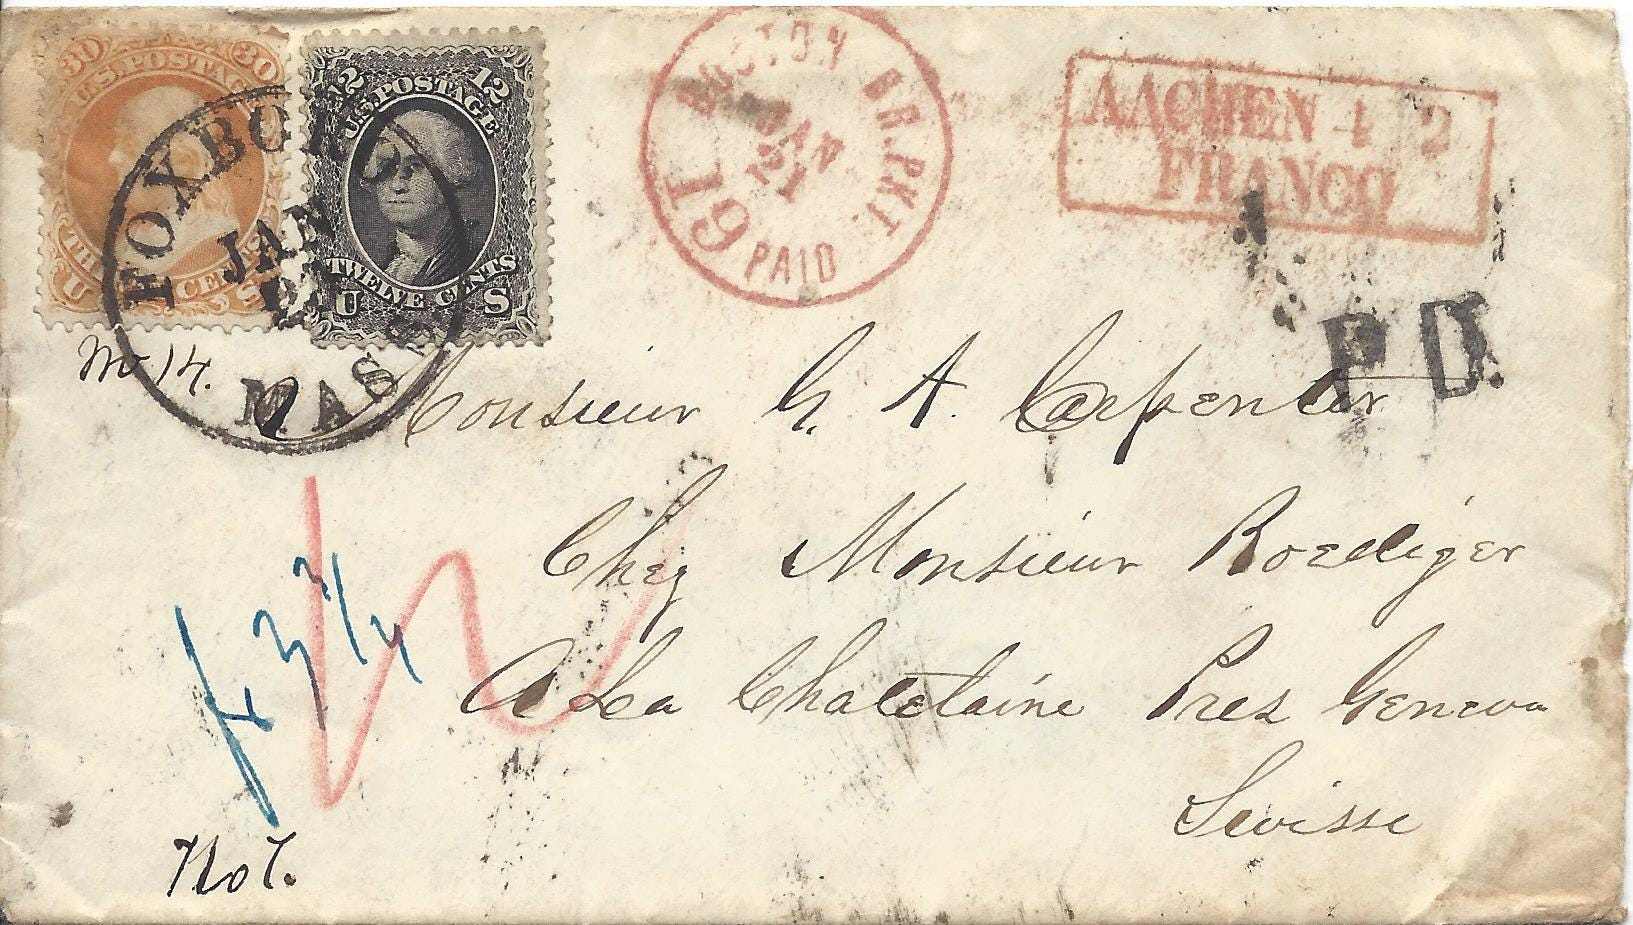 30 30
U.S. POSTAGE
U CENTS S
12 12
U.S. POSTAGE
TWELVE CENTS
U S
FOXBORO
JAN
MASS
BOSTON BR. PKT.
JAN
21
19
PAID
AACHEN 4 2
FRANCO
P D.
14.
Monsieur G. A. Carpenter
Chez Monsieur Roediger
A La Chatelaine Pres Geneva
Suisse
f 3 3/4
No 7.